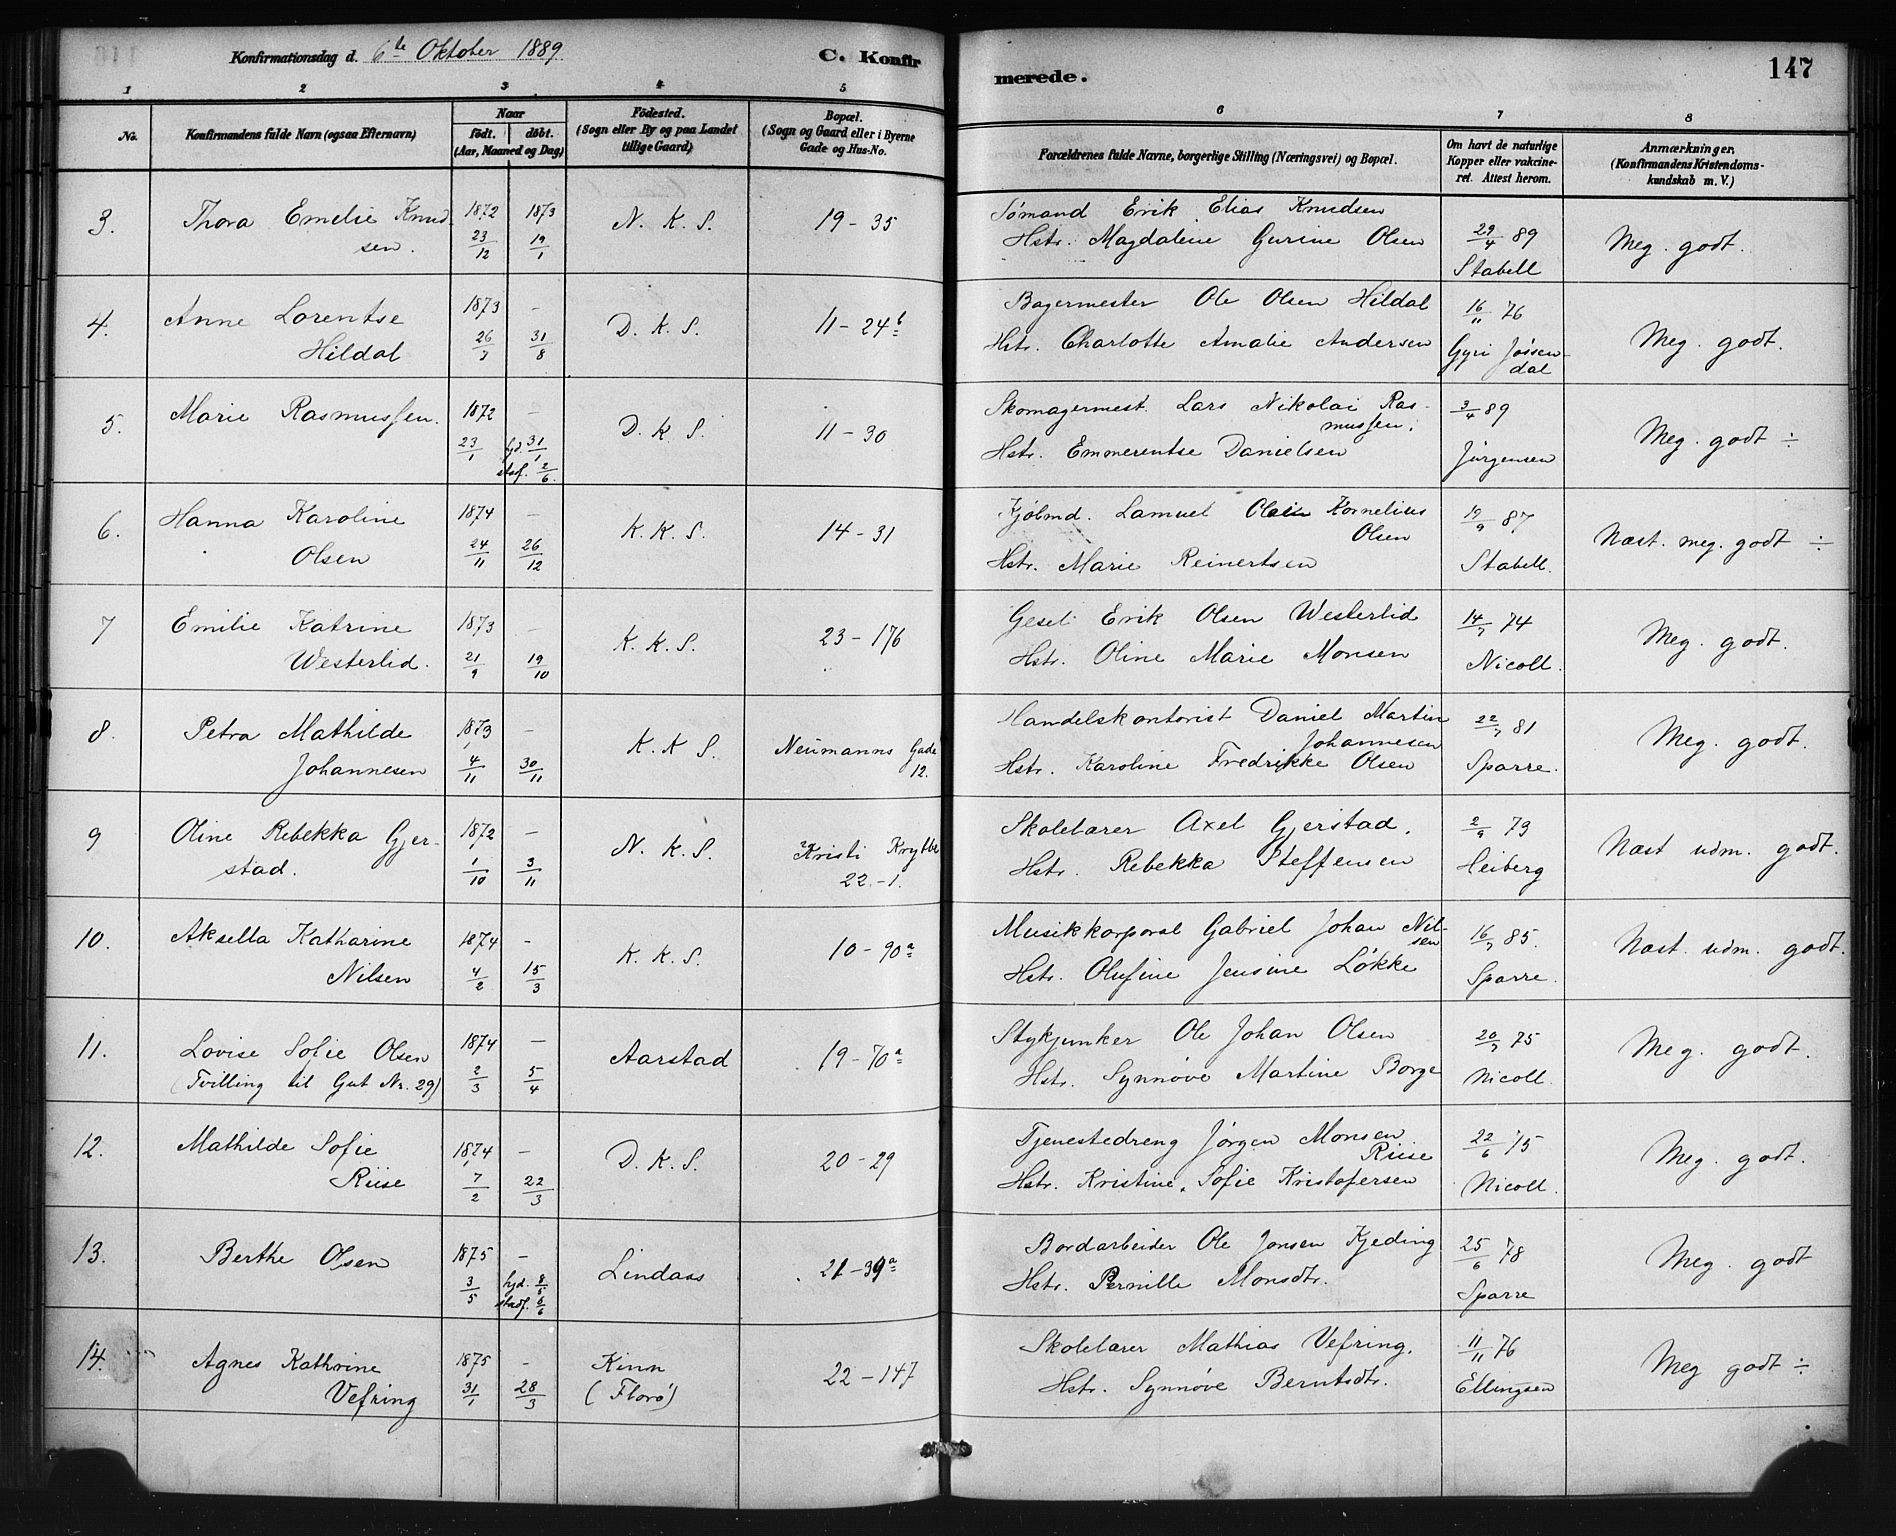 Konfirmationsdag d. 6te Oktober 1889.
C. Konfir
merede.
147
1 2 3 4 5 6 7 8
No.
Konfirmandens fulde Navn (ogsaa Efternavn)
Naar
født. døbt.
(Aar, Maaned og Dag)
Fødested.
(Sogn eller By og paa Landet
tillige Gaard)
Bopæl.
(Sogn og Gaard eller i Byerne
Gade og Hus-No.
Forældrenes fulde Navne, borgerlige Stilling (Næringsvei) og Bopæl.
Om havt de naturlige
Kopper eller vakcine-
ret. Attest herom.
Anmærkninger.
(Konfirmandens Kristendoms-
kundskab m. V.)
3. Thora Emelie Knud- 1872 1873 N. K. S. 19 - 35 Sømand Erik Elias Knudsen 29/4 89 Meg. godt.
sen. 23/12 19/1 Hstr. Magdalene Gurine Olsen Stabell
4. Anne Lorentse 1873 - D. K. S. 11 - 24b Bagermester Ole Olsen Hildal 16/11 76 Meg. godt.
Hildal 26/7 31/8 Hstr. Charlotte Amalie Andersen Gyri Jøssen-
dal
5. Marie Rasmussen. 1872 - D. K. S. 11 - 30 Skomagermest. Lars Nikolai Ras- 3/4 89 Meg. godt ÷
mussen.
23/1 hjd. 31/1 Hstr. Emmerentse Danielsen Jürgensen
stadf. 2/6.
6. Hanna Karoline 1874 - K. K. S. 14 - 31 Kjøbmd. Samuel Olein Kornelius 19/9 87 Næst. meg. godt ÷
Olsen
Olsen 24/11 26/12 Hstr. Marie Reinertsen Stabell.
7 Emilie Katrine 1873 - K. K. S. 23 - 176 Gesel Erik Olsen Westerlid 14/7 74 Meg. godt.
Westerlid. 21/9 19/10 Hstr. Oline Marie Monsen Nicoll.
8. Petra Mathilde 1873 - K. K. S. Neumanns Gade Handelskontorist Daniel Martin 22/7 81 Meg. godt.
12. Johannesen
Johannesen 4/11 30/11 Hstr. Karoline Fredrikke Olsen Sparre.
9 Oline Rebekka Gjer- 1872 - N. K. S. Kristi Krybbe Skolelærer Axel Gjerstad. 2/9 73 Næst udm. godt.
stad. 1/10 3/11 22 - 1. Hstr. Rebekka Steffensen Heiberg
10. Aksella Katharine 1874 - K. K. S. 10 - 90a Musikkorporal Gabriel Johan Nil- 16/7 85. Næst. udm. godt.
sen
Nilsen 4/2 15/3 Hstr. Olufine Jensine Løkke Sparre.
11. Lovise Sofie Olsen 1874 - Aarstad 19 - 70a Stykjunker Ole Johan Olsen 20/7 75 Meg. godt.
(Tvilling til Gut Nr. 29) 2/3 5/4 Hstr. Synnøve Martine Borge Nicoll
12. Mathilde Sofie 1874 - D. K. S. 20 - 29 Tjenestedreng Jørgen Monsen 22/6 75 Meg. godt.
Riise
Riise 7/2 22/3 Hstr. Kristine Sofie Kristofersen Nicoll.
13. Berthe Olsen 1875 - Lindaas 21 - 39a Bordarbeider Ole Jonsen Kjeding 25/6 78 Meg. godt
3/5 hjd. 8/5 Hstr. Pernille Monsdtr. Sparre
stadf. 6/6
14. Agnes Kathrine 1875 - Kinn 22 - 147 Skolelærer Mathias Vefring. 11/11 76 Meg godt ÷
Vefring 31/1 28/3 (Florø) Hstr. Synnøve Berntsdtr. Ellingsen